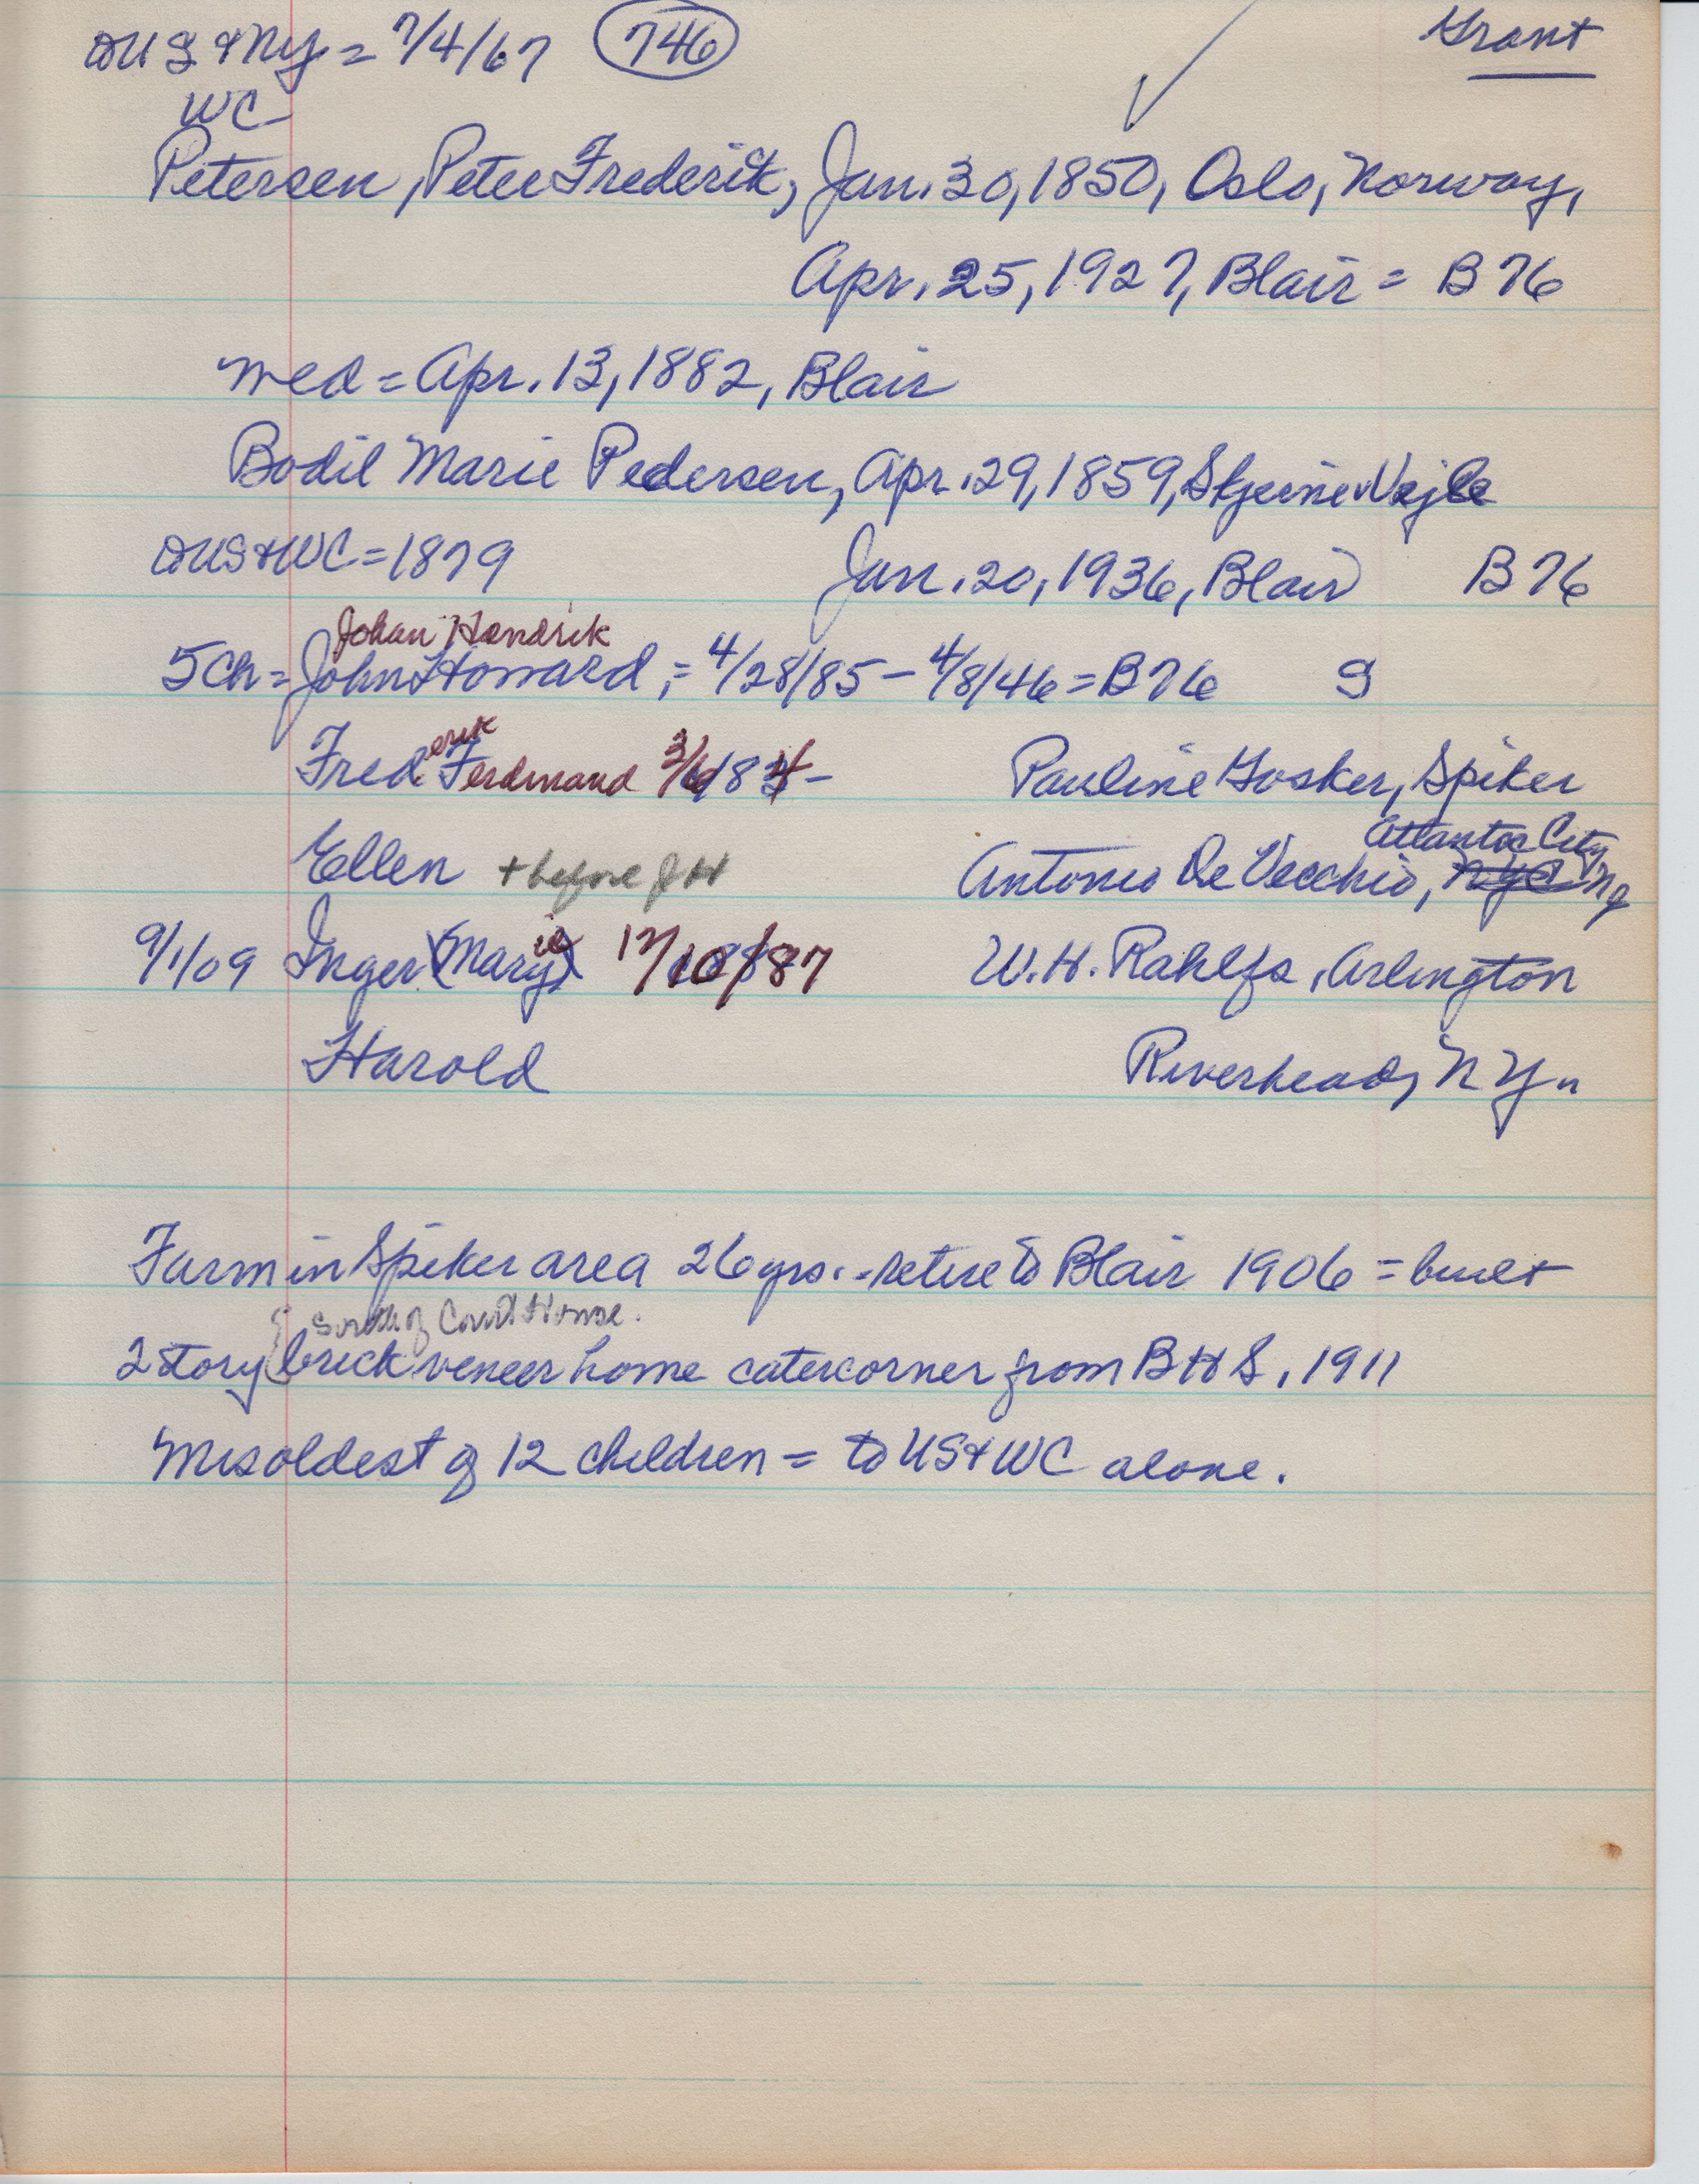 US & NY = 7/4/67 (746) Grant
WC
Petersen, Peter Frederik, Jan. 30, 1850, Oslo, Norway,
Apr. 25, 1927, Blair = B 76
med = Apr. 13, 1882, Blair
Bodil Marie Pedersen, Apr. 29, 1859, Vejle
US & WC = 1879 Jan. 20, 1936, Blair B 76
Johan Hendrik
5 Ch = John Howard, = 4/28/85 – 4/8/46 = B 76 S
erik
Fred Ferdinand 3/6/84 – Pauline Gosker, Spiker
Atlantic City
Ellen + before J H Antonio De Vecchio, NYC NJ
ie
9/1/09 Inger (Mary) 12/10/87 W. H. Rahlfs, Arlington
Harold Riverhead, N Y.
Farm in Spiker area 26 yrs. - retire to Blair 1906 = built
South of Court House.
2 story brick veneer home catercorner from B H S, 1911
Mrs oldest of 12 children = to US & WC alone.